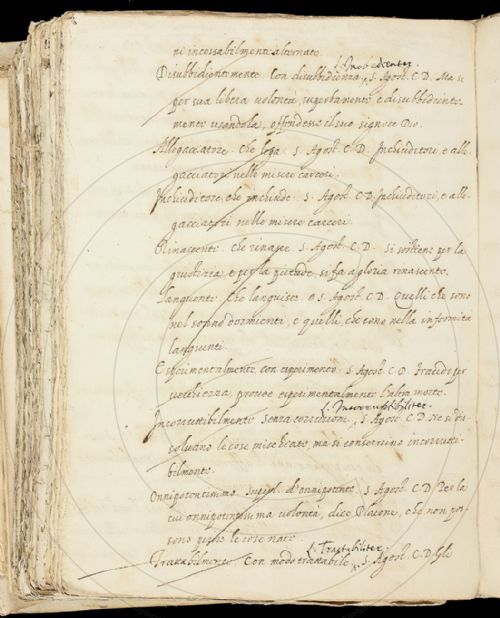 ni incessabilmente alternate.
L. Inobedienter.
Disubbidientemente. Con disubbidienza, S. Agost. C. D. Ma se
per sua libera volontà, superbamente e disubbidiente-
mente usandola, offendesse il suo signore Dio.
Allegacciatore. Che lega. S. Agost. C. D. Inchiuditori, e alle-
gacciatori nelle misere carceri.
Inchiuditore, che inchiude. S. Agost. C. D. Inchiuditori, e alle-
gacciatori nelle misere carceri.
Rinascente. Che rinasce. S. Agost. C. D. Si sostiene per la
giustizia, e per la pietade, si fa a gloria renascente.
Languente. Che languisce. S. Agost. C. D. Quelli che sono
nel sonno dormienti, e quelli, che sono nella infermità
languenti.
Esperimentalmente. con esperimento. S. Agost. C. D. Traendo per
vecchiezza, provee esperimentalmente l'altra morte.
L. Incorruptibiliter.
Incorruttibilmente. Senza corruzione, S. Agost. C. D. Ne si dis-
solvano le cose mischiate, ma si conservino incorrutti-
bilmente.
Onnipotentissimo. Superl. d'onnipotente. S. Agost. C. D. Per la
cui onnipotentissima volontà, dice Platone, che non pos-
sono perire le cose nate.
L. Tractabiliter.
Trattabilmente. Con modo trattabile, S. Agost. C. D. Gli